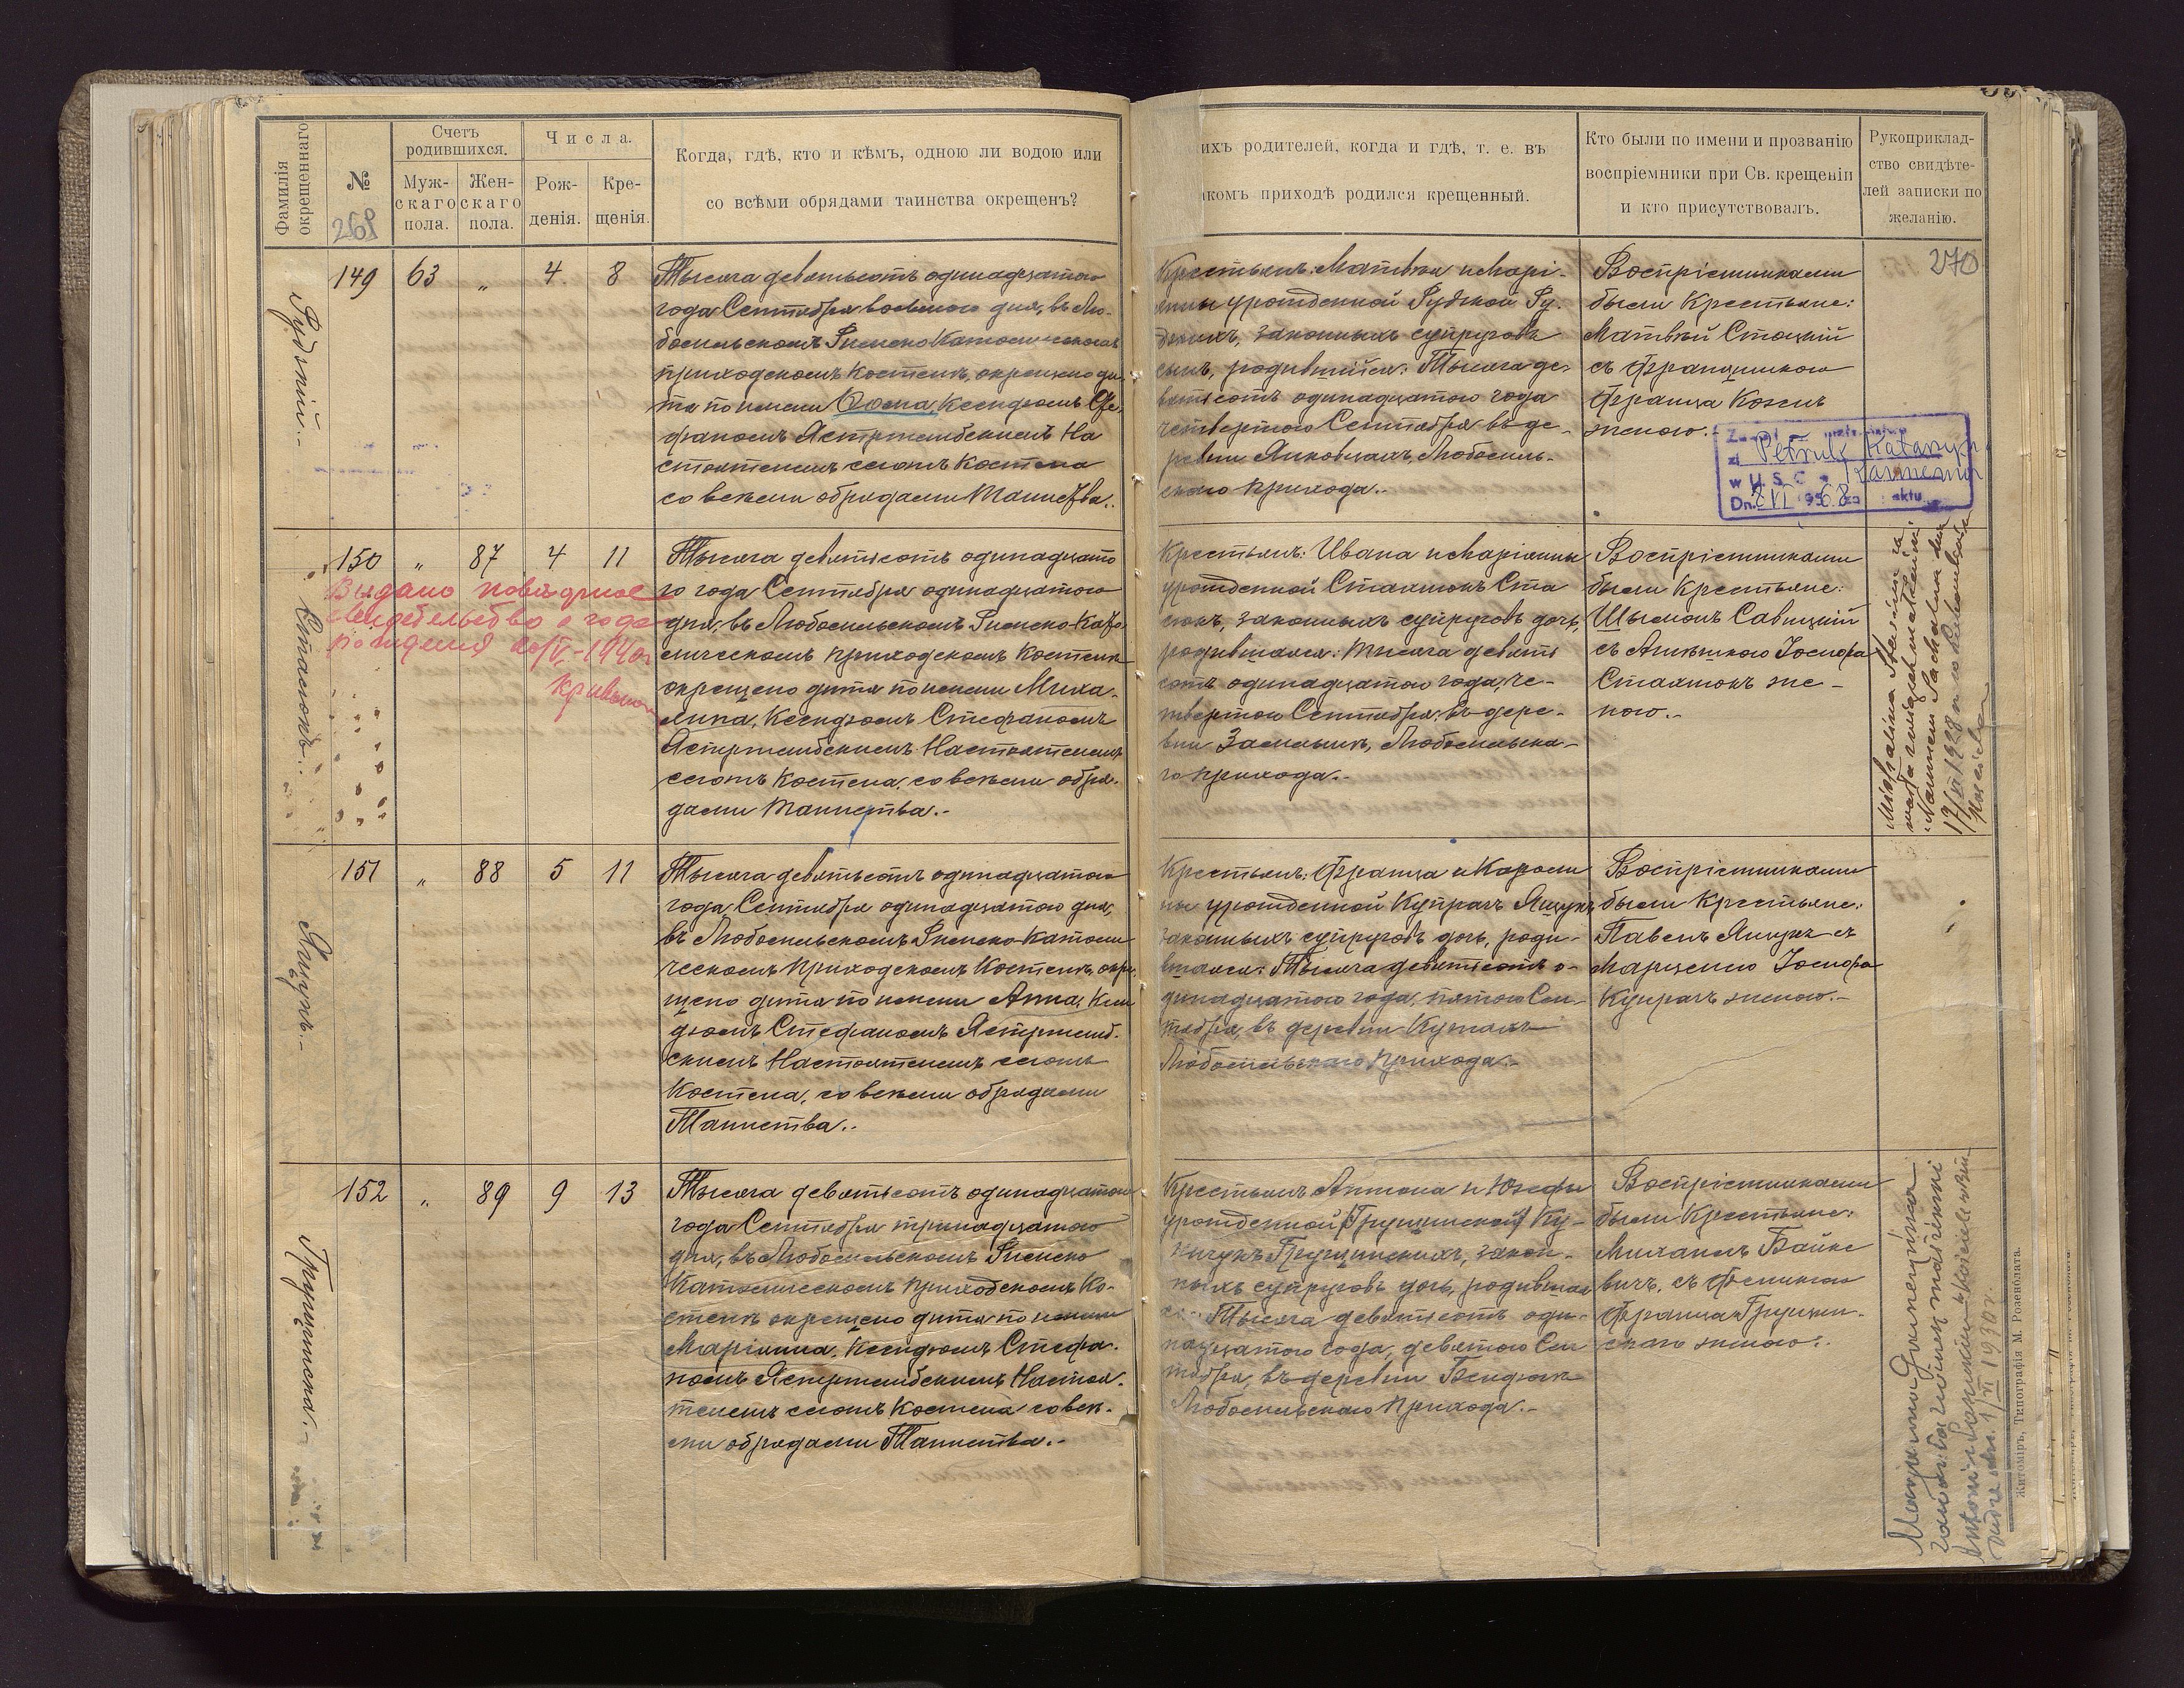 Фамилія окрещеннаго
№
268
Счетъ родившихся.
Мужскаго пола.
Женскаго пола.
Числа.
Рожденія.
Крещенія.
Когда, гдѣ, кто и кѣмъ, одною ли водою или
со всѣми обрядами таинства окрещенъ?
ихъ родителей, когда и гдѣ, т. е. въ
комъ приходѣ родился крещенный.
Кто были по имени и прозванію
воспріемники при Св. крещеніи
и кто присутствовалъ.
Рукоприклад-
ство свидѣте-
лей записки по
желанію.
270
Рудскій.-
149 63 „ 4 8
Тысяча девятьсотъ одинадцатого
года Сентября восьмого дня, въ Лю-
бомльскомъ Римско Католическомъ
приходскомъ Костелѣ, окрещено ди-
тя по имени Ѳома, Ксендзомъ Сте-
фаномъ Ястржембскимъ На
стоятелемъ сегожъ Костела
со всѣми обрядами Таинства..
Крестьянъ: Матвѣя и Марі-
анны урожденной Рудской Ру-
дскихъ, законныхъ супруговъ
сынъ, родившійся: Тысяча де-
вятьсотъ одинадцатого года
четвертого Сентября въ де-
ревни Янковцахъ, Любомль-
скаго прихода..
Воспріемниками
были Крестьяне:
Матвѣй Стоцкій
съ Францишкою
Франца Козелъ
женою.-
Petruk Kataryn
w U.S.C.
Dn. VI 1968 aktu
Стасюкъ.-
150 „ 87 4 11
Выдано повторное
свидетельство о годе
рождения 20/V-1940г
Тысяча девятьсотъ одинадцато
го года Сентября одинадцатого
дня, въ Любомльскомъ Римско-Като-
лическомъ приходскомъ Костелѣ
окрещено дитя по имени Миха-
лина, Ксендзомъ Стефаномъ
Ястржембскимъ Настоятелемъ
сегожъ Костела, со всѣми обря-
дами Таинства.-
Крестьянъ: Ивана и Маріанны
урожденной Стахнюкъ Ста
сюкъ, законныхъ супруговъ дочь,
родившаяся: Тысяча девять
сотъ одинадцатого года, че-
твертого Сентября, въ дере-
вни Замлыня, Любомльска-
го прихода.-
Воспріемниками
были Крестьяне:
Шымонъ Савицкій
съ Агнѣшкою Іосифа
Стахнюкъ же-
ною.-
Michalina Stasiuk za
warła związek małżeński
17/VI 1928
Ящукъ.-
151 „ 88 5 11
Тысяча девятьсотъ одинадцатого
года, Сентября одинадцатого дня,
въ Любомльскомъ Римско-Католи
ческомъ приходскомъ Костелѣ, окре-
щено дитя по имени Анна, Ксен
дзомъ Стефаномъ Ястржемб-
скимъ Настоятелемъ сегожъ
Костела, со всѣми обрядами
Таинства..
Крестьянъ: Франца и Кароли
ны урожденной Купрачъ Ящукъ,
законныхъ супруговъ дочь, роди-
вшаяся: Тысяча девятьсотъ о-
динадцатого года, пятого Сен-
тября, въ деревни Кутахъ
Любомльскаго прихода.-
Воспріемниками
были Крестьяне:
Павелъ Ящукъ съ
Марцелею Іосифа
Купрачъ женою.-
Грущинска.-
152 „ 89 9 13
Тысяча девятьсотъ одинадцатого
года Сентября тринадцатого
дня, въ Любомльскомъ Римско
Католическомъ приходскомъ Ко-
стелѣ окрещено дитя по имени
Маріанна, Ксендзомъ Стефа-
номъ Ястржембскимъ Настоя-
телемъ сегожъ Костела со всѣ-
ми обрядами Таинства.-
Крестьянъ Антона и Юзефы
урожденной Ку-
Грущинскихъ, закон-
ныхъ супруговъ дочь, родившая
ся: Тысяча девятьсотъ оди-
надцатого года, девятого Сен
тября, въ деревни Бендюга
Любомльскаго прихода.-
Воспріемниками
были Крестьяне:
Михаилъ Байке
вичъ, съ Феликсою
Франца Грущин-
скаго женою.-
zawarła związek małżeński
dnia 1/VI 1930 r.
Житоміръ, Типографія М. Розенблатъ.